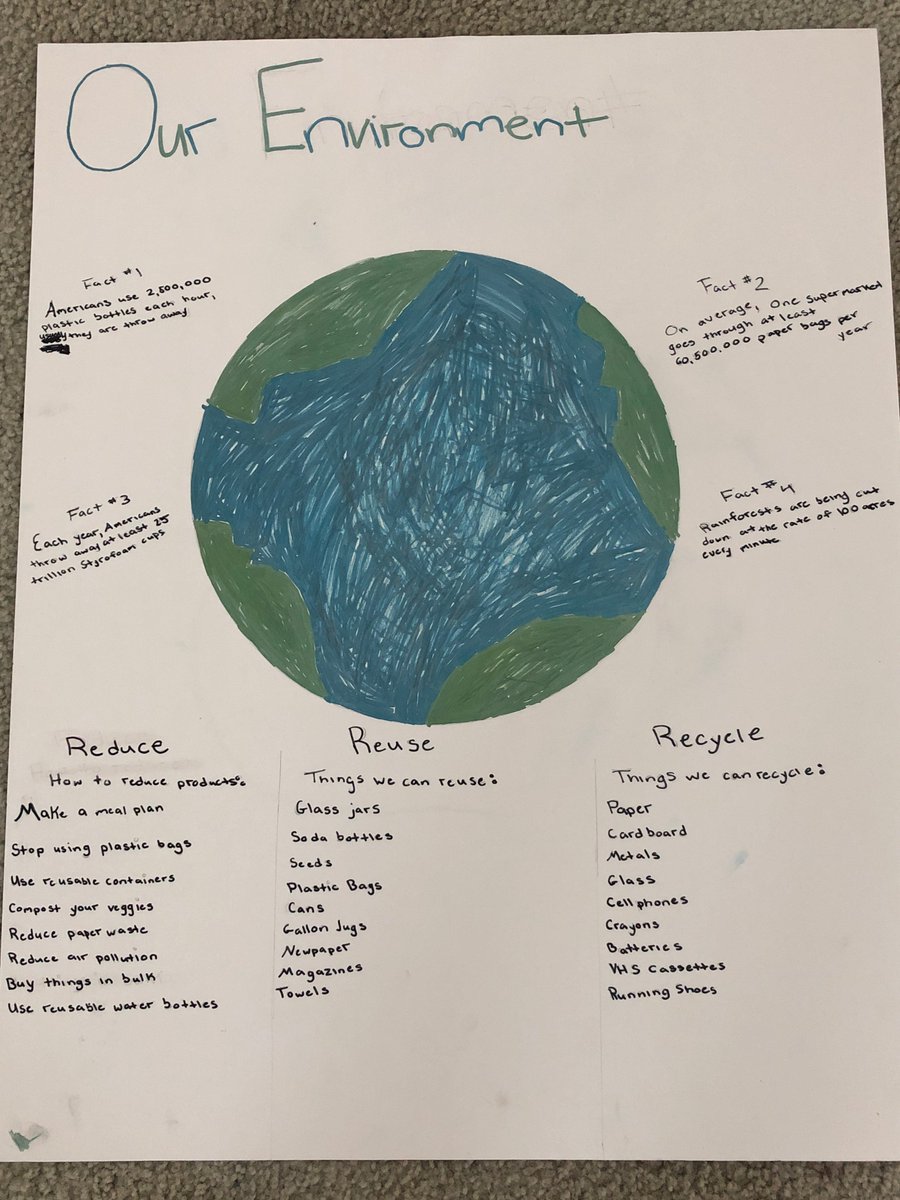 Our Environment
Fact #1
Americans use 2,500,000
plastic bottles each hour,
they are throw away
Fact #2
On average, One supermarked
goes through at least
60,500.000 paper bags per
year
Fact #3
Each year, Americans
throw away at least 25
trillion Styrofoam cups
Fact #4
Rainforests are being cut
down at the rate of 100 acres
every minute
Reduce
How to reduce products:
Make a meal plan
Stop using plastic bags
Use reusable containers
Compost your veggies
Reduce paper waste
Reduce air pollution
Buy things in bulk
Use reusable water bottles
Reuse
Things we can reuse:
Glass jars
Soda bottles
Seeds
Plastic Bags
Cans
Gallon Jugs
Newpaper
Magazines
Towels
Recycle
Things we can recycle:
Paper
Cardboard
Metals
Glass
Cell phones
Crayons
Batteries
VHS Cassettes
Running Shoes